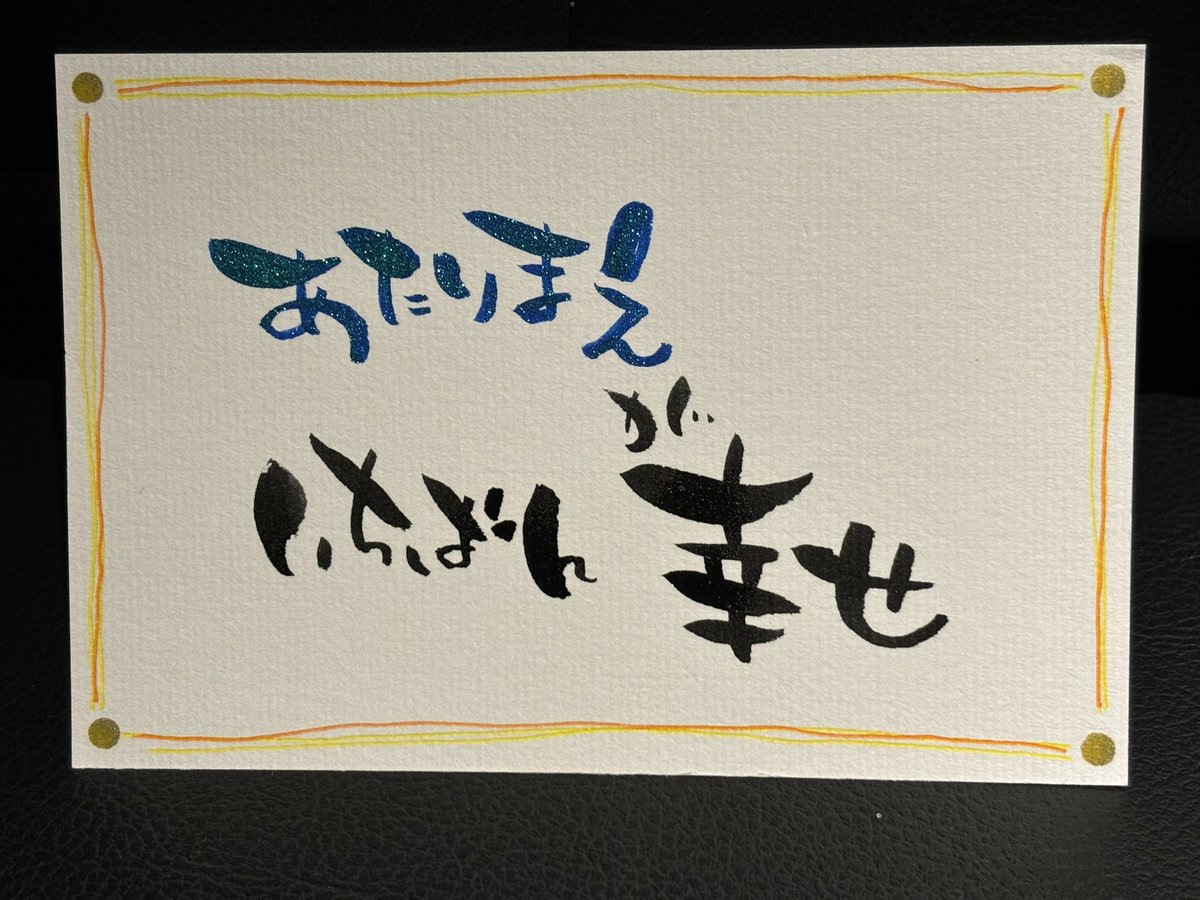 あたりまえ
が
いちばん幸せ